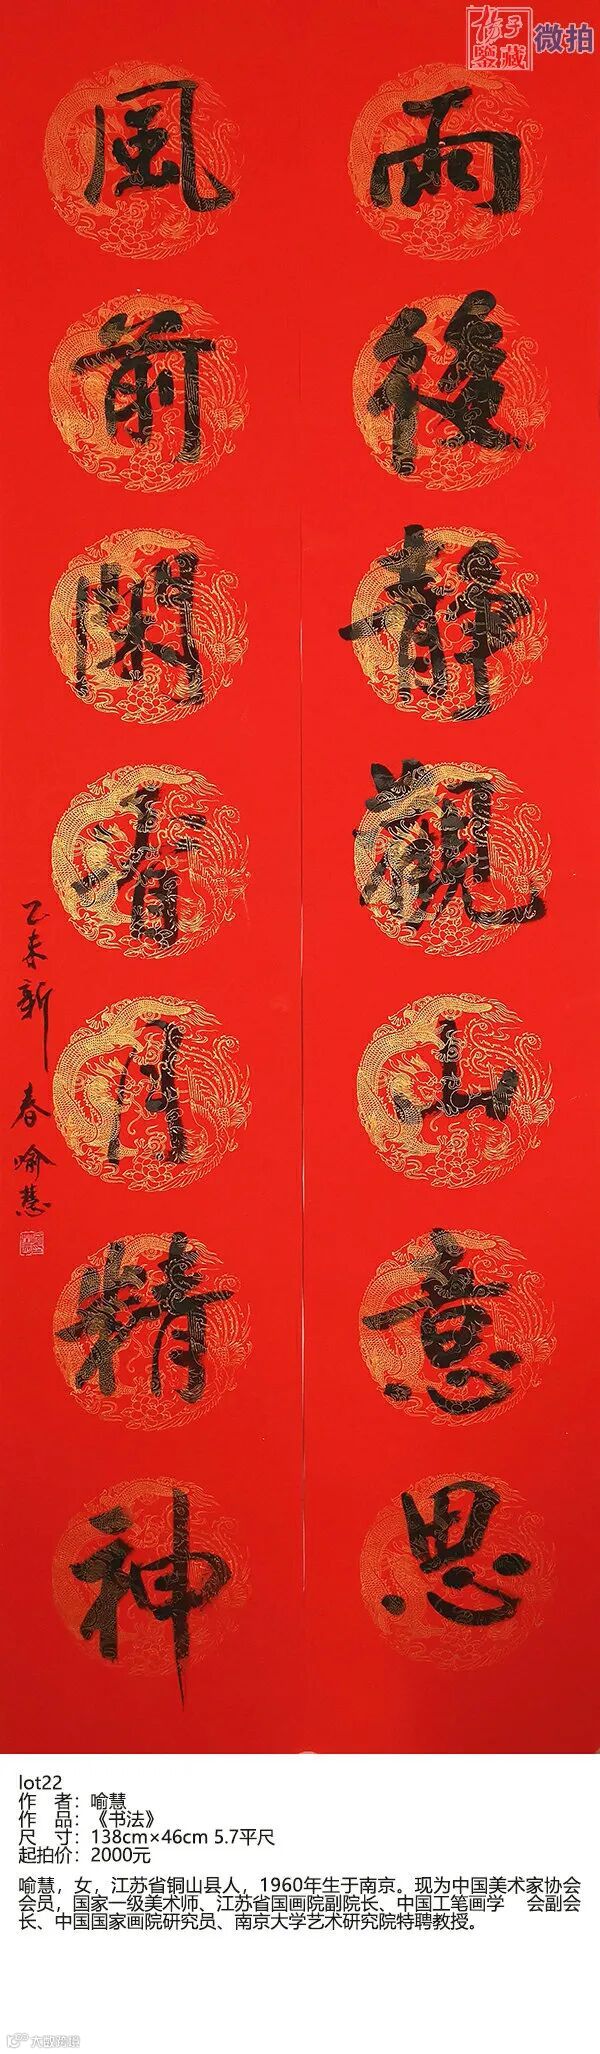 扬子
鉴藏
微拍
雨後静觀山意思
風前閑看月精神
乙未新春喻慧
lot22
作 者：喻慧
作 品：《书法》
尺 寸：138cm×46cm 5.7平尺
起拍价：2000元
喻慧，女，江苏省铜山县人，1960年生于南京。现为中国美术家协会
会员，国家一级美术师、江苏省国画院副院长、中国工笔画学 会副会
长、中国国家画院研究员、南京大学艺术研究院特聘教授。
大欧跨境